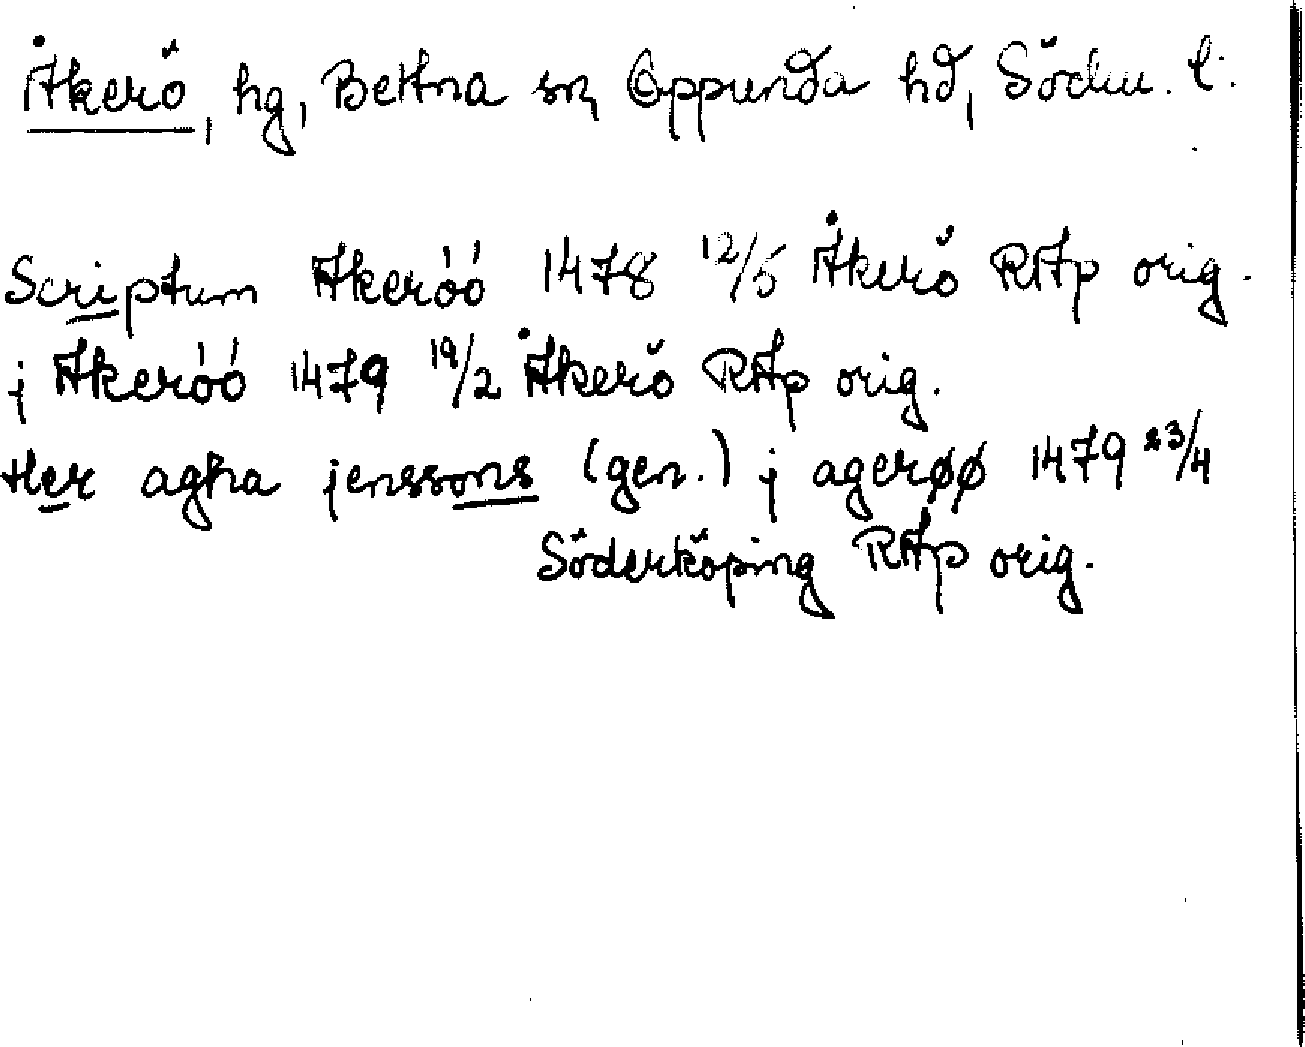 Åkerö, hg, Bettna sn, Oppunda hd, Södm. l.
Scriptum Akeróó 1478 12/5 Åkerö RAp orig.
j Akeróó 1479 19/2 Åkerö RAp orig.
Her agha jenssons (gen.) j agerøø 1479 23/4
Söderköping RAp orig.